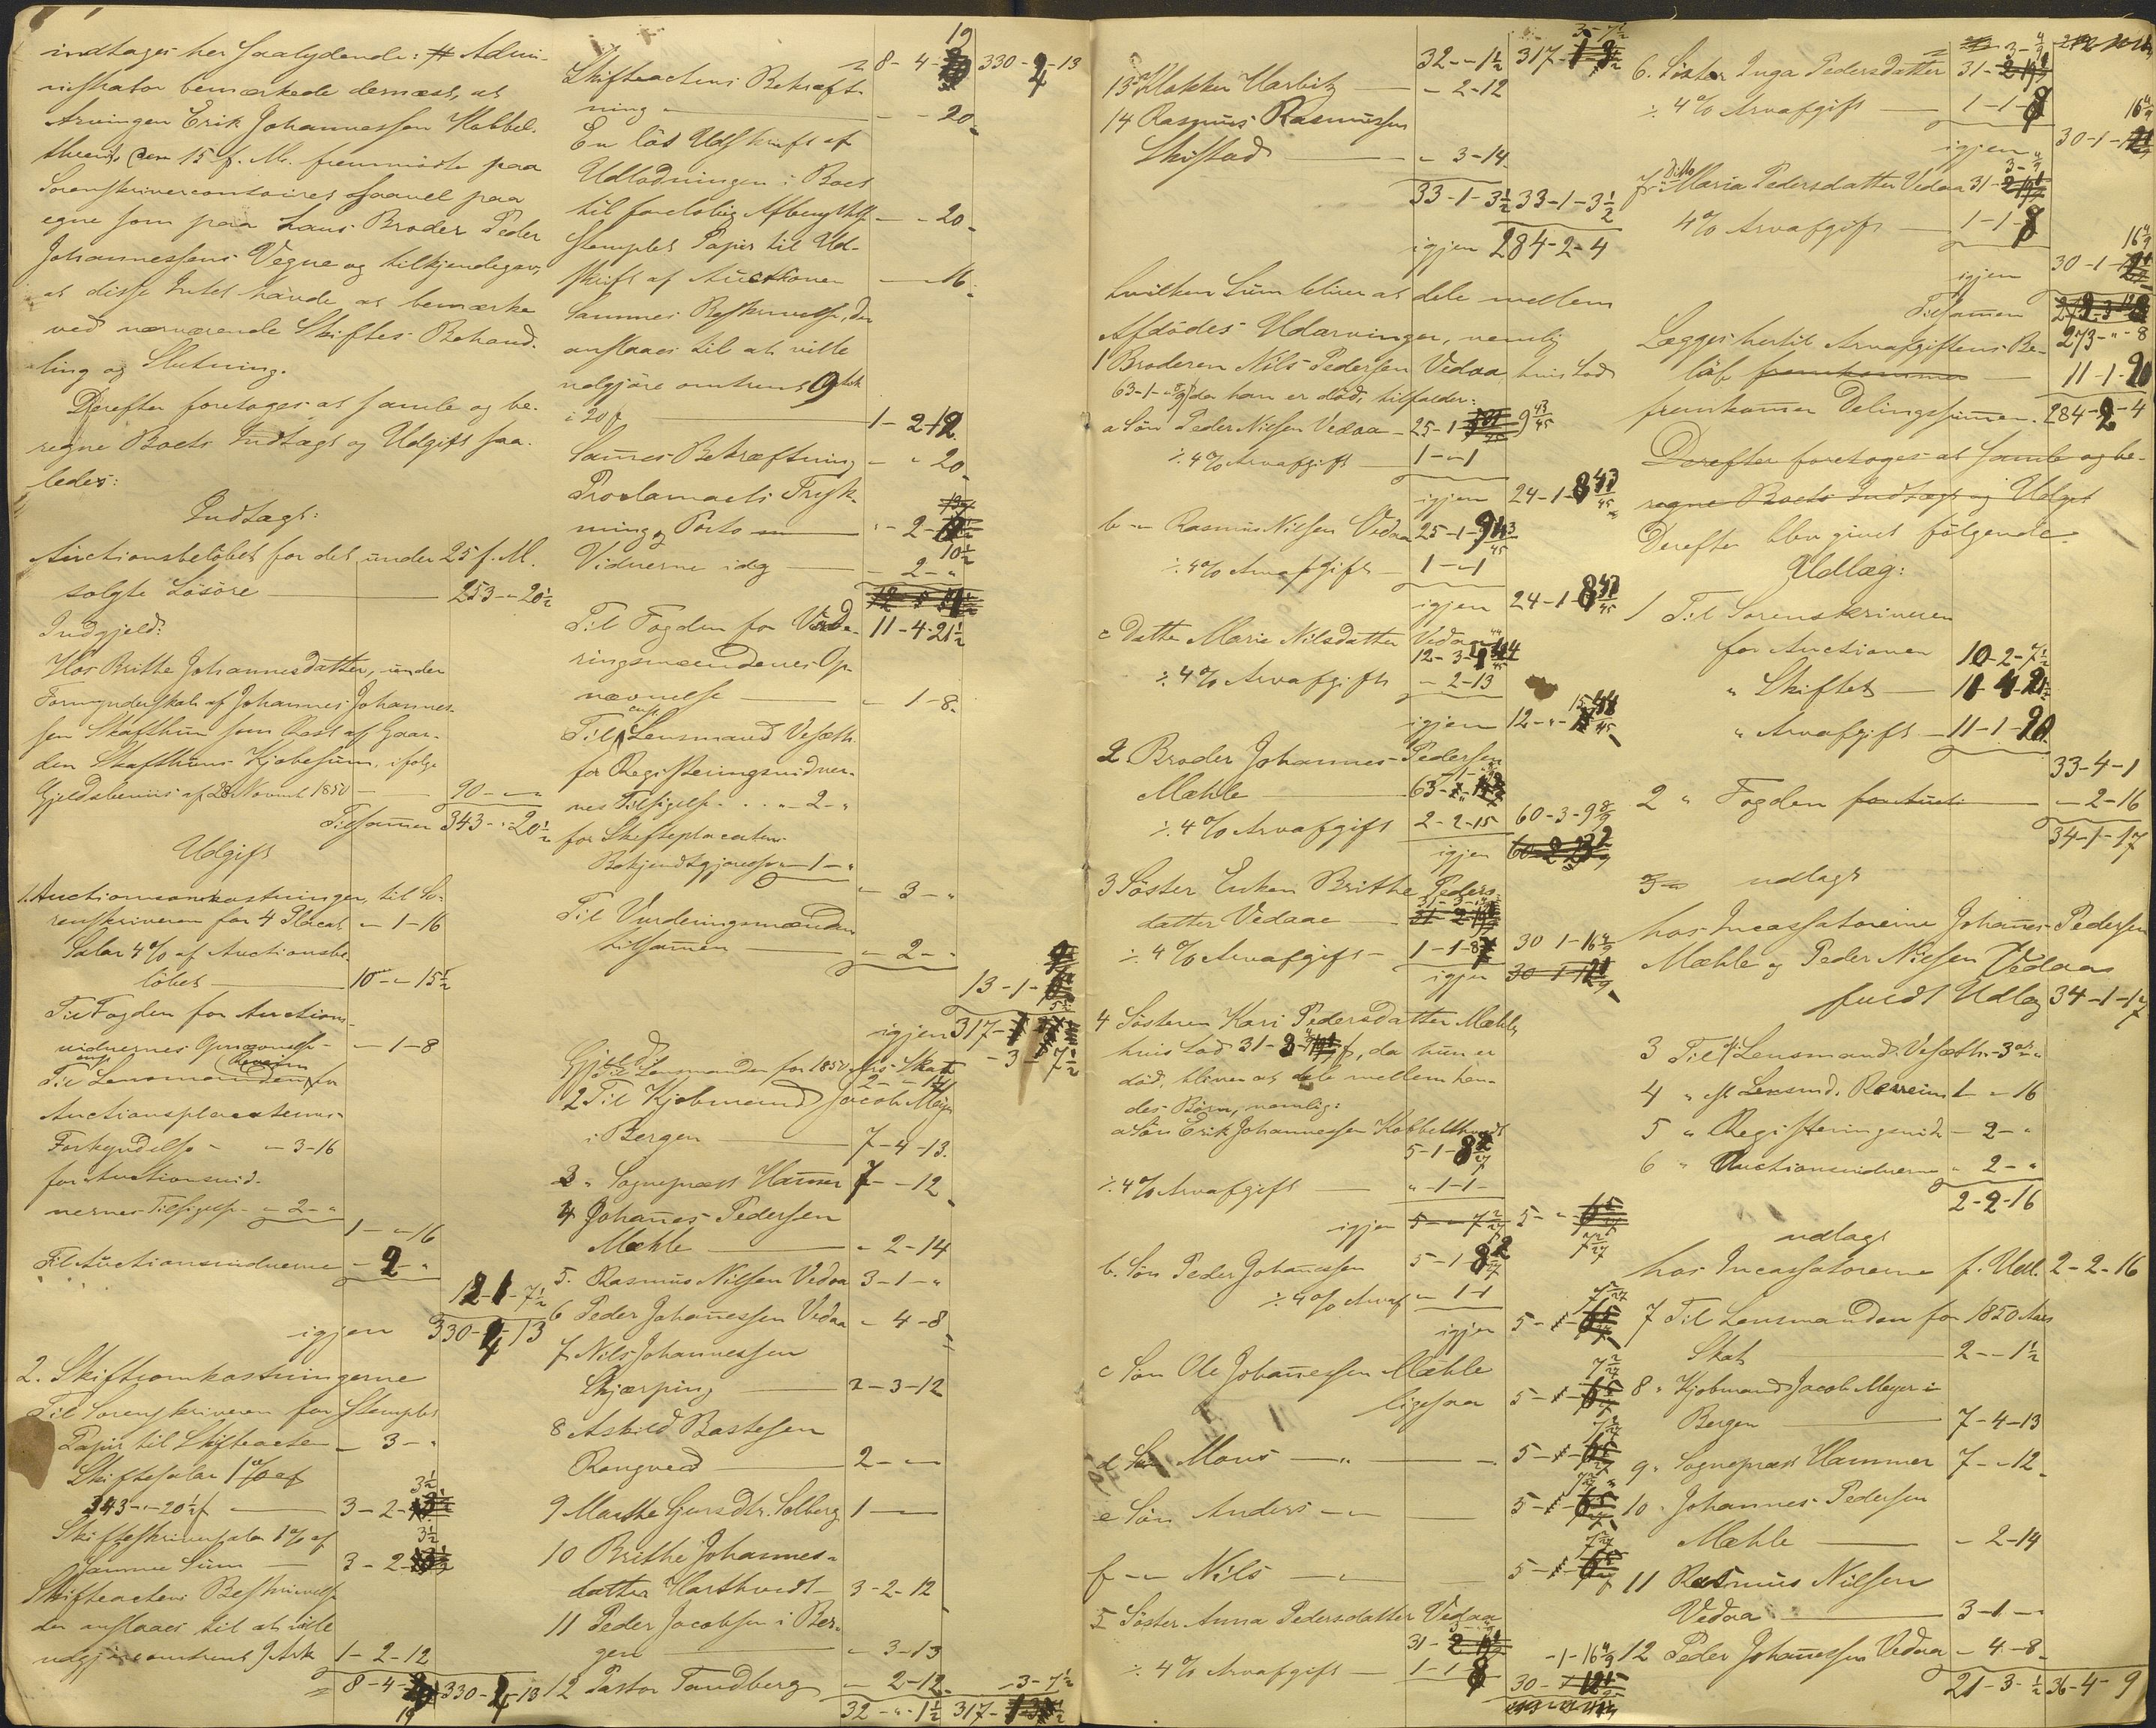 indtages her saalydende: # Admi-
nistrator bemærkede dernæst, at
Arvingen Erik Johannessen Kobbel-
thvedt den 15 f. M. fremmødte paa
Sorenskrivercontoiret saavel paa
egne som paa hans Broder Peder
Johannessens Vegne og tilkjendegav,
at disse Intet havde at bemærke
ved nærværende Skiftes Behand-
ling og Slutning.
Derefter foretoges at samle og be-
regne Boets Indtægt og Udgift saa-
ledes:
Indtægt:
Auctionsbeløbet for det under 25 f. M.
solgte Løsøre 253 - " 20½
Indgjeld:
Hos Brithe Johannesdatter, under
Formynderskab af Johannes Johannes-
sen Skafthun som Rest af Gaar-
den Skafthuns Kjøbesum, ifølge
Gjeldsbeviis af 28 Novemb 1850 90 - " -
Tilsammen 343 - " - 20½
Udgift
1. Auctionsomkostninger, til So-
renskriveren for 4 Placat " - 1 - 16
Salar 4% af Auctionsbe-
løbet 10 - " 15½
Til Fogden for Auctions-
vidnernes Opnævnelse - " - 1 - 8
Til const Lensmanden Røveim for
Auctionsplacaternes
Forkyndelse - " - 3 - 16
for Auctionsvid-
nernes Tilsigelse - " 2 - "
1 - " - 16
Til Auctionsvidnerne - 2 - "
12 - 1 - 7½
igjen 330 - 4 - 13
2. Skiftesomkostningerne
Til Sorenskriveren for stemplet
Papir til Skifteacten - 3 - "
Skiftesalar 1% af
343 - " - 20½ f 3 - 2 - 3½
Skifteskriversalar 1% af
samme Sum 3 - 2 - 3½
Skifteactens Beskrivelse
der anslaaes til at ville
udgjøre omtrent 9 Ark 1 - 2 - 12
8 - 4 - 19 330 - 4 - 13
8 - 4 - 19 330 - 4 - 13
Skifteactens Bekræft-
ning - - 20
En løs Udskrift af
Udlodningen i Boet
til foreløbig Afbenyttelse - - 20
Stemplet Papir til Ud-
skrift af Auctionen - - 16
Sammes Beskrivelse, der
anslaaes til at ville
udgjøre omtrent 9 Ark
i 20 f 1 - 2 - 12
Sammes Bekræftning - " 20
Proclamaets Tryk-
ning og Porto - 2 - 10½
Vidnerne i dag - 2 - "
11 - 4 - 21½
Til Fogden for Vurde-
ringsmændenes Op-
nævnelse - 1 - 8
Til const Lensmand Vefæth
for Registeringsvidner-
nes Tilsigelse . . . " - 2 - "
for Skifteplacatens
Bekjendtgjørelse - 1 - "
- 3 - "
Til Vurderingsmændene
tilsammen - 2 - "
13 - 1 -
igjen 317 - 3 - 7½
Gjeld:
1 Til Lensmanden for 1850 Aars Skat 2 - " 1½
2 Til Kjøbmand Jacob Meyer
i Bergen 7 - 4 - 13.
3 " Sognepræst Hammer 7 - " 12
4 Johannes Pedersen
Mæhle " 2 - 14
5. Rasmus Nilsen Vedaa 3 - 1 - "
6 Peder Johannessen Vedaa - 4 - 8
7 Nils Johannessen
Skjærping 2 - 3 - 12
8 Askild Bastesen
Rongved 2 - " -
9 Marthe Gjersdtr. Solberg 1 -
10 Brithe Johannes-
datter Harthvedt 3 - 2 - 12
11 Peder Jacobsen i Ber-
gen " - 3 - 13
12 Pastor Tandberg - 2 - 12
32 - " - 1½ 317 - 3 - 7½
32 - - 1½ 317 - 3 - 7½
13 Klokker Harbitz - 2 - 12
14 Rasmus Rasmussen
Skistad - 3 - 14
33 - 1 - 3½ 33 - 1 - 3½
igjen 284 - 2 - 4
hvilken Sum bliver at dele mellem
Afdødes Udarvinger, nemlig
1 Broderen Nils Pedersen Vedaa, hvis Lod
da han er død, tilfalder:
a Søn Peder Nilsen Vedaa - 25 - 1 - 9 43/45
÷ 4% Arvafgift 1 - " - 1
igjen 24 - 1 - 8 43/45
b - " Rasmus Nilsen Vedaa 25 - 1 - 9 43/45
÷ 4% Arvafgift 1 - " - 1
igjen 24 - 1 - 8 43/45
c Datter Marie Nilsdatter Vedaa
÷ 4% Arvafgift - 2 - 13
igjen 12 - " - 15 44/45
2 Broder Johannes Pedersen
Mæhle
÷ 4% Arvafgift 2 - 2 - 15 60 - 3 - 9 8/9
igjen
3 Søster Enken Brithe Peders-
datter Vedaae
÷ 4% Arvafgift - 1 - 1 - 8 30 - 1 - 16 4/9
igjen
4 Søsteren Kari Pedersdatter Mæhle,
hvis Lod 31 - 3 - f, da hun er
død, bliver at dele mellem hen-
des Børn, nemlig:
a Søn Erik Johannessen Kobbelthvedt
5 - 1 - 8 2/27
÷ 4% Arvafgift " - 1 - 1 -
igjen 5 - " - 7 2/27
b. Søn Peder Johannessen 5 - 1 - 8 2/27
÷ 4% Arvaf - " 1 - 1
igjen 5 - " - 7 2/27
c Søn Ole Johannessen Mæhle
ligesaa 5 - " - 7 2/27
d Søn Mons - " - 5 - " - 7 2/27
e Søn Anders - " - 5 - " - 7 2/27
f - " Nils - " - 5 - " - 7 2/27
5 Søster Anna Pedersdatter Vedaa
31 -
÷ 4% Arvafgift 1 - 1 - 8
30 - 1 - 16 4/9
6. Søster Inga Pedersdatter 31 - 3 - 4/9
÷ 4% Arvafgift 1 - 1 - 8
igjen 30 - 1 - 16 4/9
7 Ditto Maria Pedersdatter Vedaa 31 - 3 - 4/9
4% Arvafgift 1 - 1 - 8
igjen 30 - 1 - 16 4/9
Tilsammen
273 - " - 8
Lægges hertil Arvafgiftens Be-
løb fremkommer 11 - 1 - 20
fremkommer Delingssummen. 284 - 2 - 4
Derefter foretoges at samle og be-
regne Boets Indtægt og Udgift
Derefter blev givet følgende
Udlæg:
1 Til Sorenskriveren
for Auctionen 10 - 2 - 7½
" Skiftet 11 - 4 - 21½
" Arvafgift 11 - 1 - 20
33 - 4 - 1
2 " Fogden for Aucti - 2 - 16
34 - 1 - 17
udlagt
hos Incassatorerne Johannes Pedersen
Mæhle og Peder Nilsen Vedaa
fuldt Udlæg 34 - 1 - 17
3 Til cst Lensmand Vefæth - 3 ort - "
4 " cst Lensmd. Røveim 1 - " 16
5 " Registeringsvid - 2 - "
6 " Auctionsvidnerne " 2 - "
2 - 2 - 16
udlagt
hos Incassatorerne f. Udl. 2 - 2 - 16
7 Til Lensmanden for 1850 Aars
Skat 2 - - 1½
8 " Kjøbmand Jacob Meyer i
Bergen 7 - 4 - 13
9 " Sognepræst Hammer 7 - - 12
10 " Johannes Pedersen
Mæhle - 2 - 14
11 Rasmus Nilsen
Vedaa 3 - 1 - "
12 Peder Johannessen Vedaa - 4 - 8
21 - 3 - ½ 36 - 4 - 9